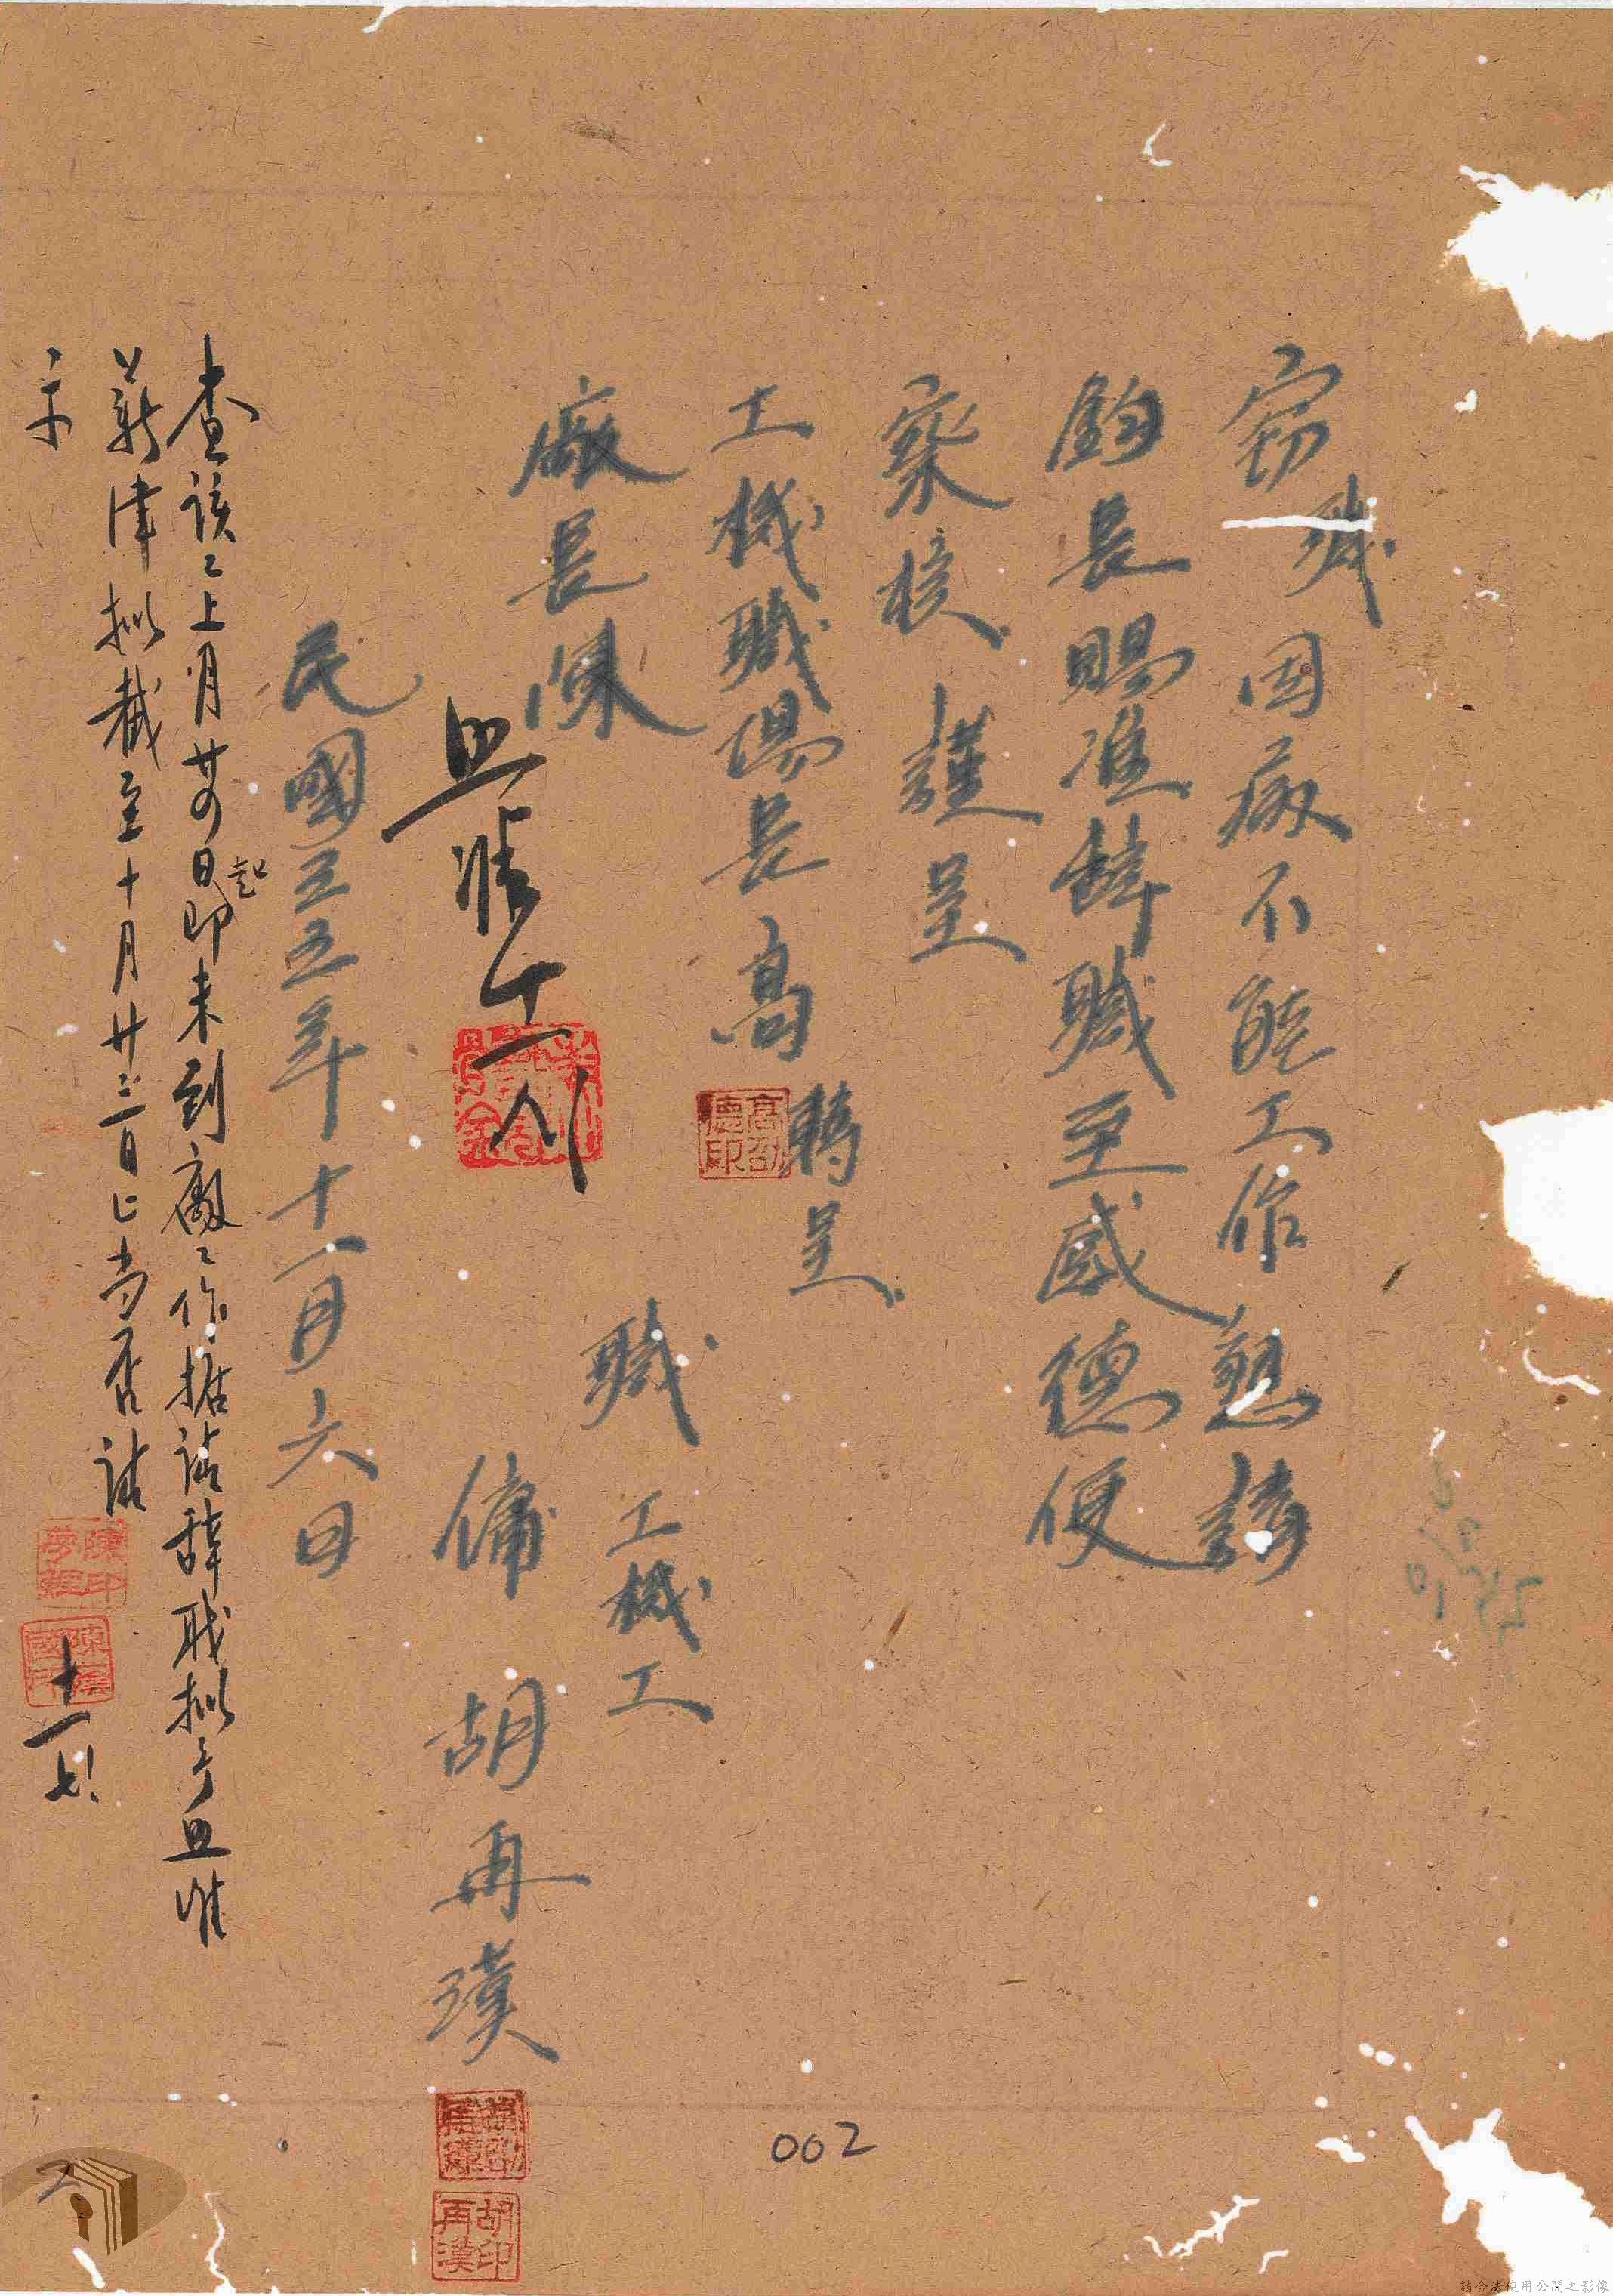 竊職因病不能工作懇請
鈞長賜准辞職至感德便
察核謹呈
工機職場長高轉呈
高
德印
廠長陳
職工機工
傭胡再璞
胡印
再漢
照准十一八
民國三五年十一月六日
查該工上月廿四日起即未到廠工作据請辞职拟予照准
薪津拟截至十月廿三日止当否請
示
陳印
十一七
002
2
請合法使用公開之影像